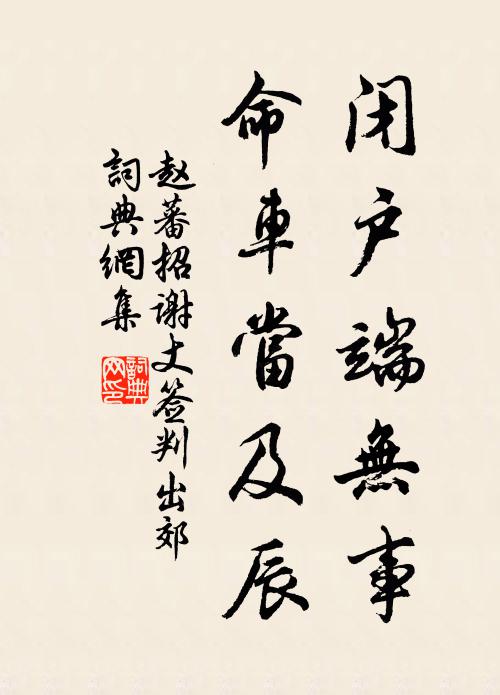 闭户端無事
命車當及辰
赵蕃招谢丈签判出郊
詞典網集
詞典網印